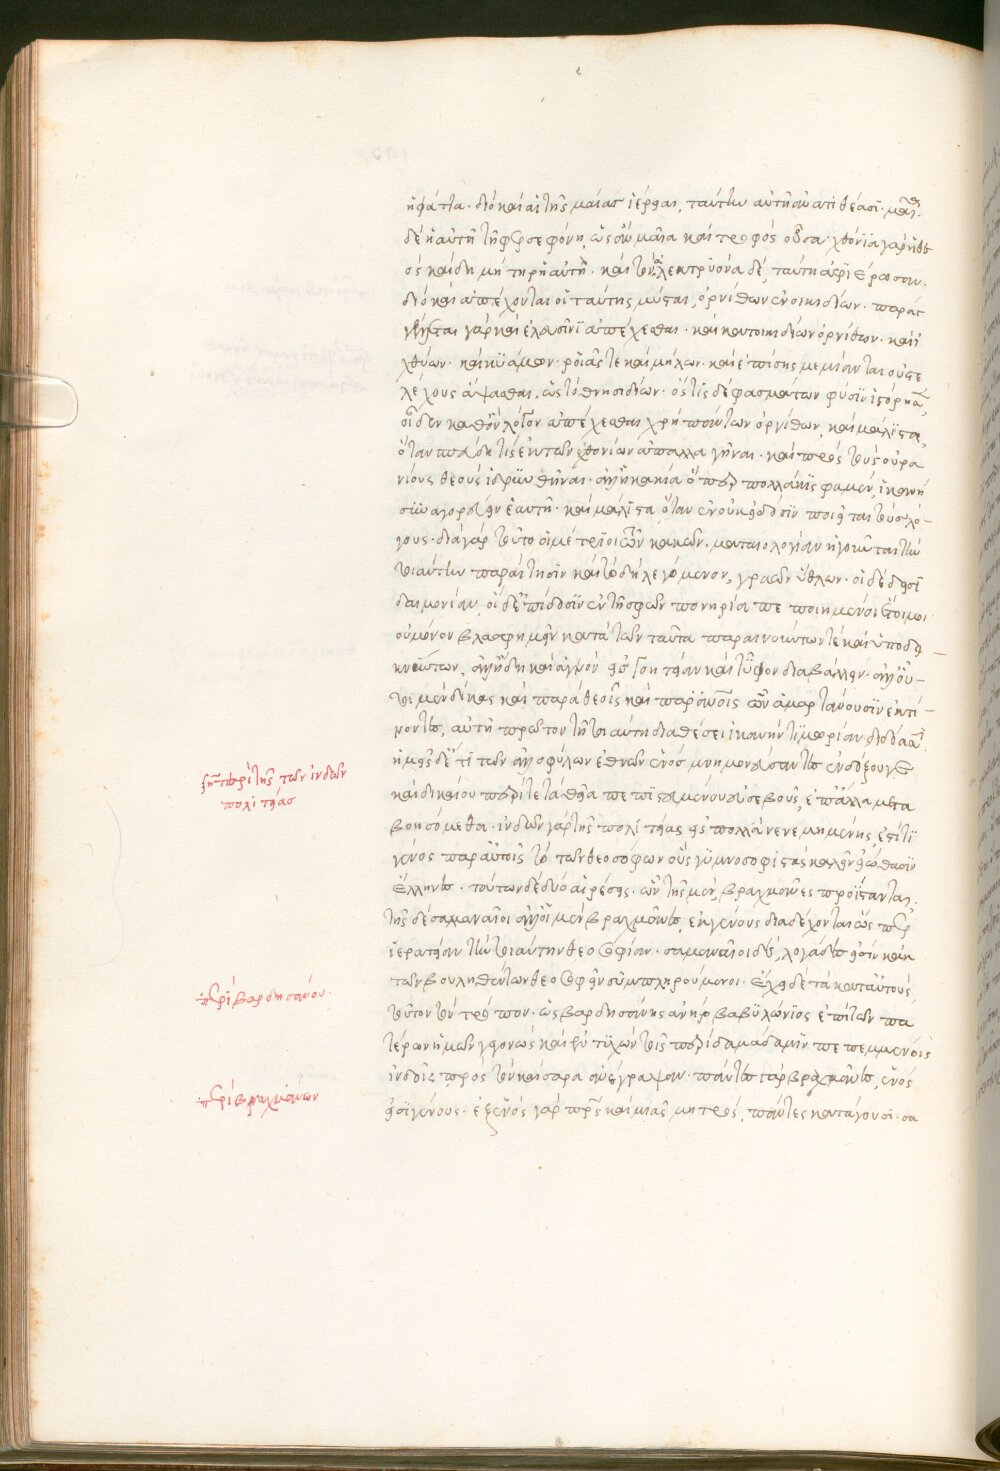 ἡ φάττα · διὸ καὶ αἱ τῆς μαίας ἱέρειαι, ταύτην αὐτῆ ἀνατιθέασϊ · μαῖα
δὲ ἡ αὐτὴ τῆ φερσεφόνη, ὡς ἂν μαῖα καὶ τροφὸς οὖσα · χθόνϊα γὰρ ἡ θε
ὸς καὶ δημήτηρ ἡ αὐτὴ · καὶ τὸν ἀλεκτρυόνα δὲ, ταύτη ἀφϊέρωσαν ·
διὸ καὶ ἀπέχονται οἱ ταύτης μύσται, ὀρνίθων ἐνοικιδίων · παραγ
γέλλεται γὰρ καὶ ἐλευσῖνϊ ἀπέχεσθαι · καὶ κατοικιδίων ὀρνίθων · καὶ ἰ
χθύων · καὶ κυάμων · ῥοιᾶς τε καὶ μήλων · καὶ ἐπίσης μεμίανται οὔτε
λέχους ἅψασθαι, ὡς τὸ θνησιδίων · ὅστις δὲ φασμάτων φύσϊν ἱστόρησεν,
οἶδεν καθὃν λόγον ἀπέχεσθαι χρὴ πάντων ὀρνίθων, καὶ μάλϊστα,
ὅταν σπεύδη τις ἐκ τῶν χθονίων ἀπαλλαγῆναι · καὶ πρὸς τοὺς οὐρα
νίους θεοὺς ἱδρϋνθῆναι · ἀλλ' ἡ κακία ὅπερ πολλάκϊς φαμέν, ἱκανὴ
συναγορεύειν ἑαυτῆ · καὶ μάλϊστα, ὅταν ἐν οὐκ εἰδόσϊν ποιῆται τοὺς λό-
γους · διὰ γὰρ τοῦτο οἱ μέτρϊοι τῶν κακῶν · ματαιολογίαν ἡγοῦνται τὴν
τοιαύτην παραίτησϊν καὶ τὸ δὴ λεγόμενον, γραῶν ὕθλων · οἱ δὲ δεισϊ
δαιμονίαν · οἱ δ' ἐπίδοσϊν ἐν τῆ σφῶν πονηρία πεποιημένοι ἕτοιμοι
οὐ μόνον βλασφημεῖν κατὰ τῶν ταῦτα παραινούντων τε καὶ ὑποδει-
κνύντων, ἀλλ' ἤδη καὶ ἁγνὸν εἰς γοητείαν καὶ τῦφον διαβάλλειν · ἀλλ' οὗ-
τοι μὲν δίκας καὶ παρὰ θεοῖς καὶ παρ' ἀνθρώποις ὧν ἁμαρτάνουσϊν ἐκτί-
νοντες, αὐτῆ πρῶτον τῆ τοιαύτη διαθέσει ἱκανὴν τϊμωρίαν διδόασϊ ·
ἡμεῖς δ' ἔτϊ τῶν ἀλλοφύλων ἐθνῶν ἑνὸς μνημονεύσαντες ἐνδόξου τε
καὶ δικαίου περί τε τὰ θεῖα πεπϊστευμένου εὐσεβοῦς, ἐπ' ἄλλα μετα
βησόμεθα · ἰνδῶν γὰρ τῆς πολϊτείας εἰς πολλὰ νενεμημένης, ἔστί τϊ
γένος παρ' αὐτοῖς τὸ τῶν θεοσόφων οὓς γϋμνοσοφϊστὰς καλεῖν εἰώθασϊν
ἕλληνες · τούτων δὲ δύο αἱρέσεις · ὧν τῆς μὲν, βραχμᾶνες προΐστανται,
τῆς δὲ σαμαναῖοι ἀλλ' οἱ μὲν βραχμᾶνες, ἐκ γένους διαδέχονται ὥσπερ
ἱερατείαν τὴν τοιαύτην θεοσοφίαν · σαμαναῖοι δὲ, λογάδες εἰσὶν κἀκ
τῶν βουληθέντων θεοσοφεῖν συμπληρούμενοι · ἔχει δὲ τὰ κατ' αὐτοὺς
τοῦτον τὸν τρόπον · ὡς βαρδησάνης ἀνὴρ βαβϋλώνϊος ἐπὶ τῶν πα
τέρων ἡμῶν γεγονὼς καὶ ἐντϋχὼν τοῖς περὶ δαμάδαμϊν πεπεμμένοις
ἰνδοῖς πρὸς τὸν καίσαρα ἀνέγραψεν · πάντες γὰρ βραχμᾶνες, ἑνός
εἰσϊ γένους · ἐξ ἑνὸς γὰρ πατρὸς καὶ μιᾶς μητρὸς, πάντες κατάγουσϊ · σα
περὶ τῆς τῶν ἰνδῶν
πολιτείας
περὶ βαρδησάνου ·
περὶ βραχμάνων